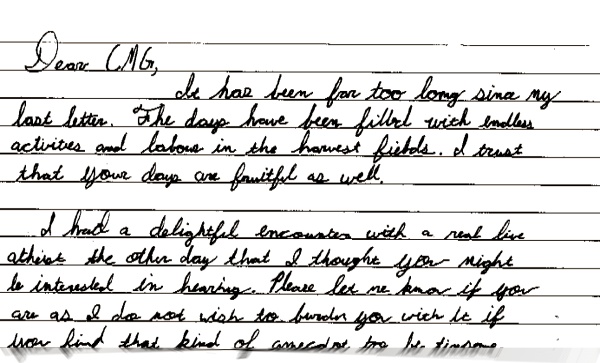 Dear CMG,
It has been far too long since my
last letter. The days have been filled with endless
activities and labour in the harvest fields. I trust
that your days are fruitful as well.
I had a delightful encounter with a real live
atheist the other day that I thought you might
be interested in hearing. Please let me know if you
are as I do not wish to burden you with it if
you find that kind of anecdote to be tiresome